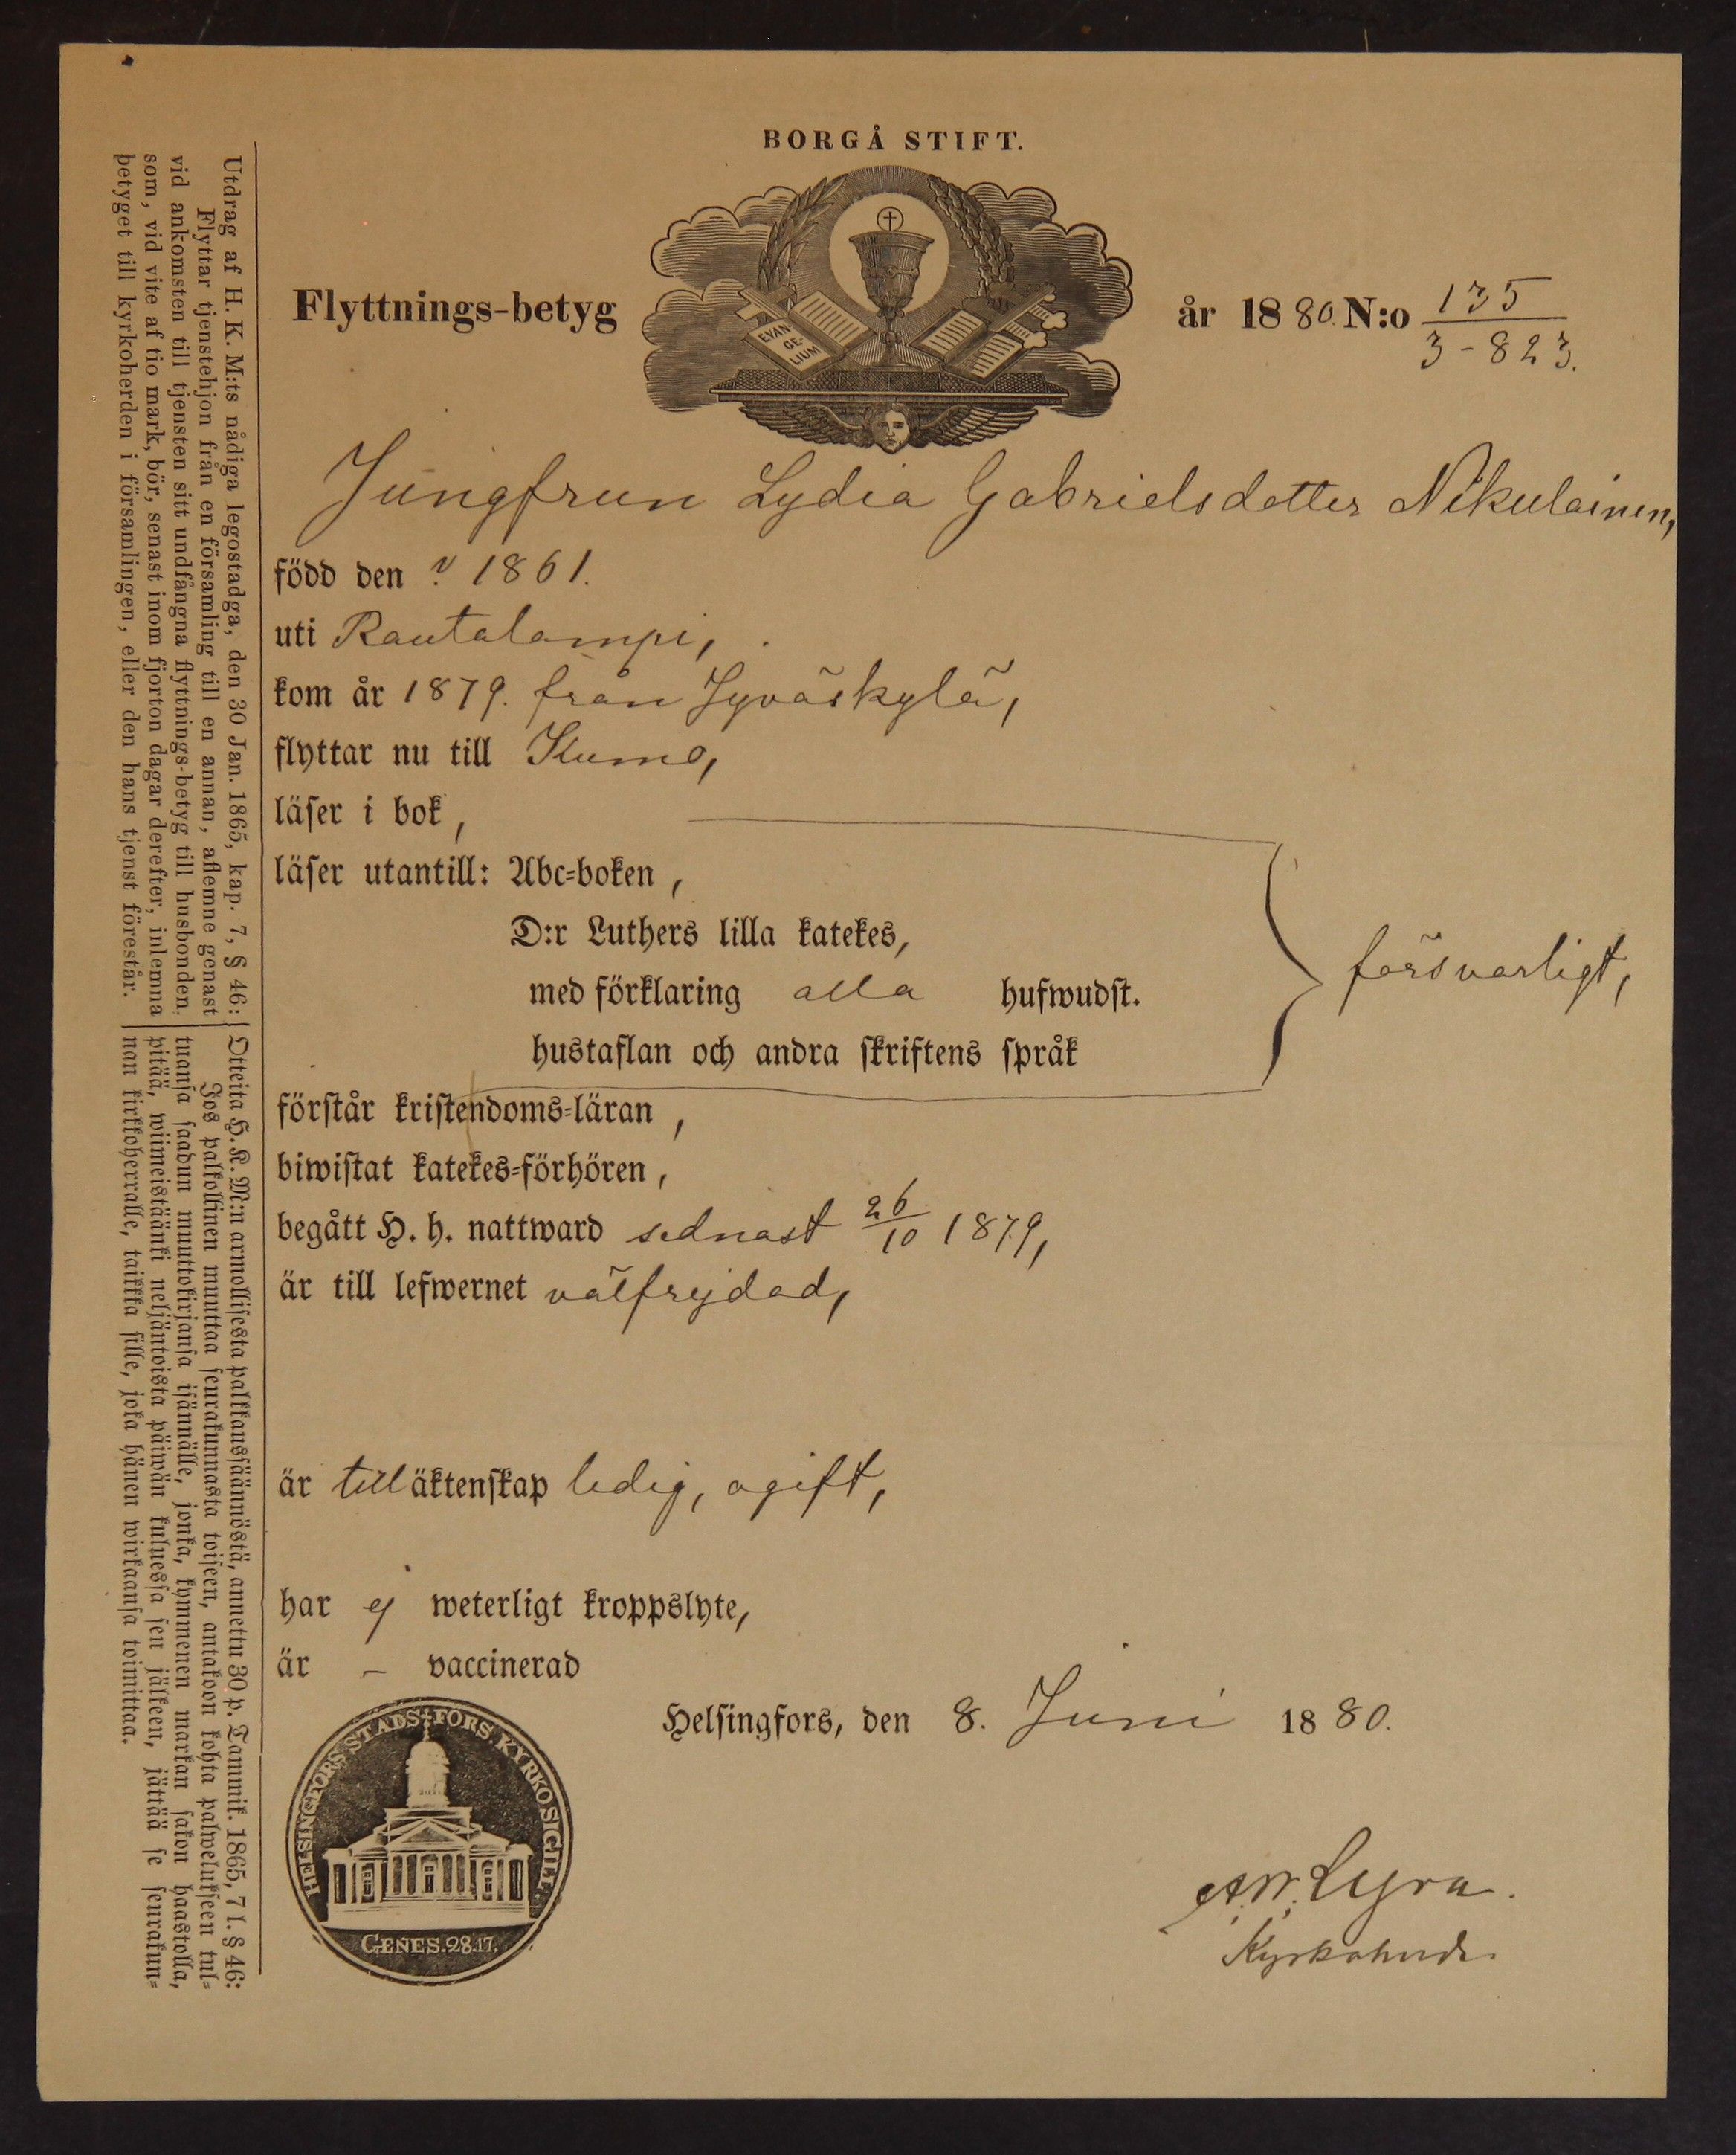 BORGÅ STIFT.
EVAN-
GE-
LIUM
Flyttnings-betyg
år 1880. N:o 135
3-823.
Jungfrun Lydia Gabrielsdotter Nikulainen,
född den ? 1861.
uti Rautalampi,
kom år 1879. från Jyväskylä,
flyttar nu till Kumo,
läser i bok,
läser utantill: Abc-boken,
D:r Luthers lilla katekes,
med förklaring alla hufwudst.
hustaflan och andra skriftens språk
försvarligt,
förstår kristendoms-läran,
biwistat katekes-förhören,
begått H. h. nattward sednast 26/10 1879,
är till lefwernet välfrejdad,
är till äktenskap ledig, ogift,
har ej weterligt kroppslyte,
är – vaccinerad
Helsingfors, den 8. Juni 1880.
A.W. Lyra.
Kyrkoherde.
HELSINGFORS STADS FÖRS. KYRKO SIGILL.
GENES. 28.17.
Utdrag af H. K. M:ts nådiga legostadga, den 30 Jan. 1865, kap. 7, § 46:
Flyttar tjenstehjon från en församling till en annan, aflemne genast
vid ankomsten till tjensten sitt undfångna flyttnings-betyg till husbonden,
som, vid vite af tio mark, bör, senast inom fjorton dagar derefter, inlemna
betyget till kyrkoherden i församlingen, eller den hans tjenst förestår.
Otteita H. K. M:n armollisesta palkkaussäännöstä, annettu 30 p. Tammik. 1865, 7 l. § 46:
Jos palkollinen muuttaa seurakunnasta toiseen, antakoon kohta palwelukseen tul-
tuansa saadun muuttokirjansa isännälle, jonka, kymmenen markan sakon haastolla,
pitää, wiimeistäänki neljäntoista päiwän kuluessa sen jälkeen, jättää se seurakun-
nan kirkkoherralle, taikka sille, joka hänen wirkaansa toimittaa.